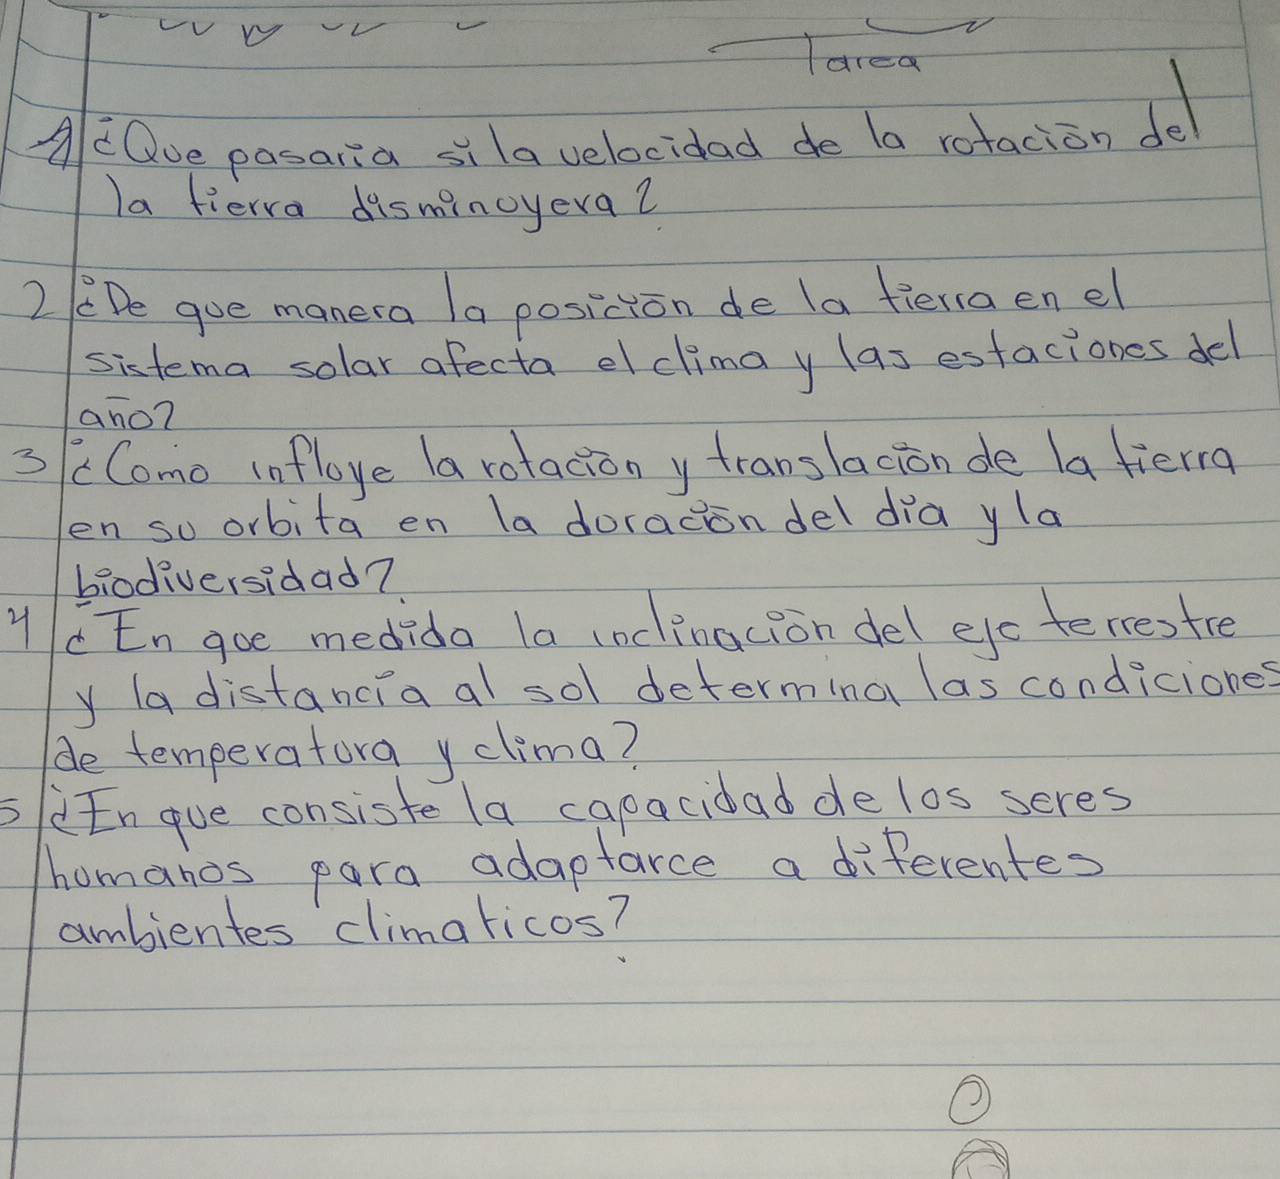 Tarea
1 ¿Que pasaria si la velocidad de la rotación del
la tierra disminuyera?
2 ¿De que manera la posición de la tierra en el
sistema solar afecta el clima y las estaciones del
año?
3 ¿Como influye la rotación y translación de la tierra
en su orbita en la duración del día y la
biodiversidad?
4 ¿En que medida la inclinación del eje terrestre
y la distancia al sol determina las condiciones
de temperatura y clima?
5 ¿En que consiste la capacidad de los seres
humanos para adaptarce a diferentes
ambientes climaticos?